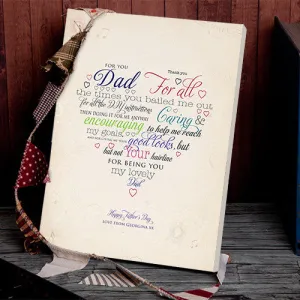 FOR YOU
Thank you
Dad For all
the times you bailed me out
for all the D.I.Y instructions
Caring &
then doing it for me anyway
encouraging to help me reach
my goals,
good looks, but
but not Your hairline
FOR BEING YOU
my lovely
Dad
Happy Father's Day
LOVE FROM GEORGINA